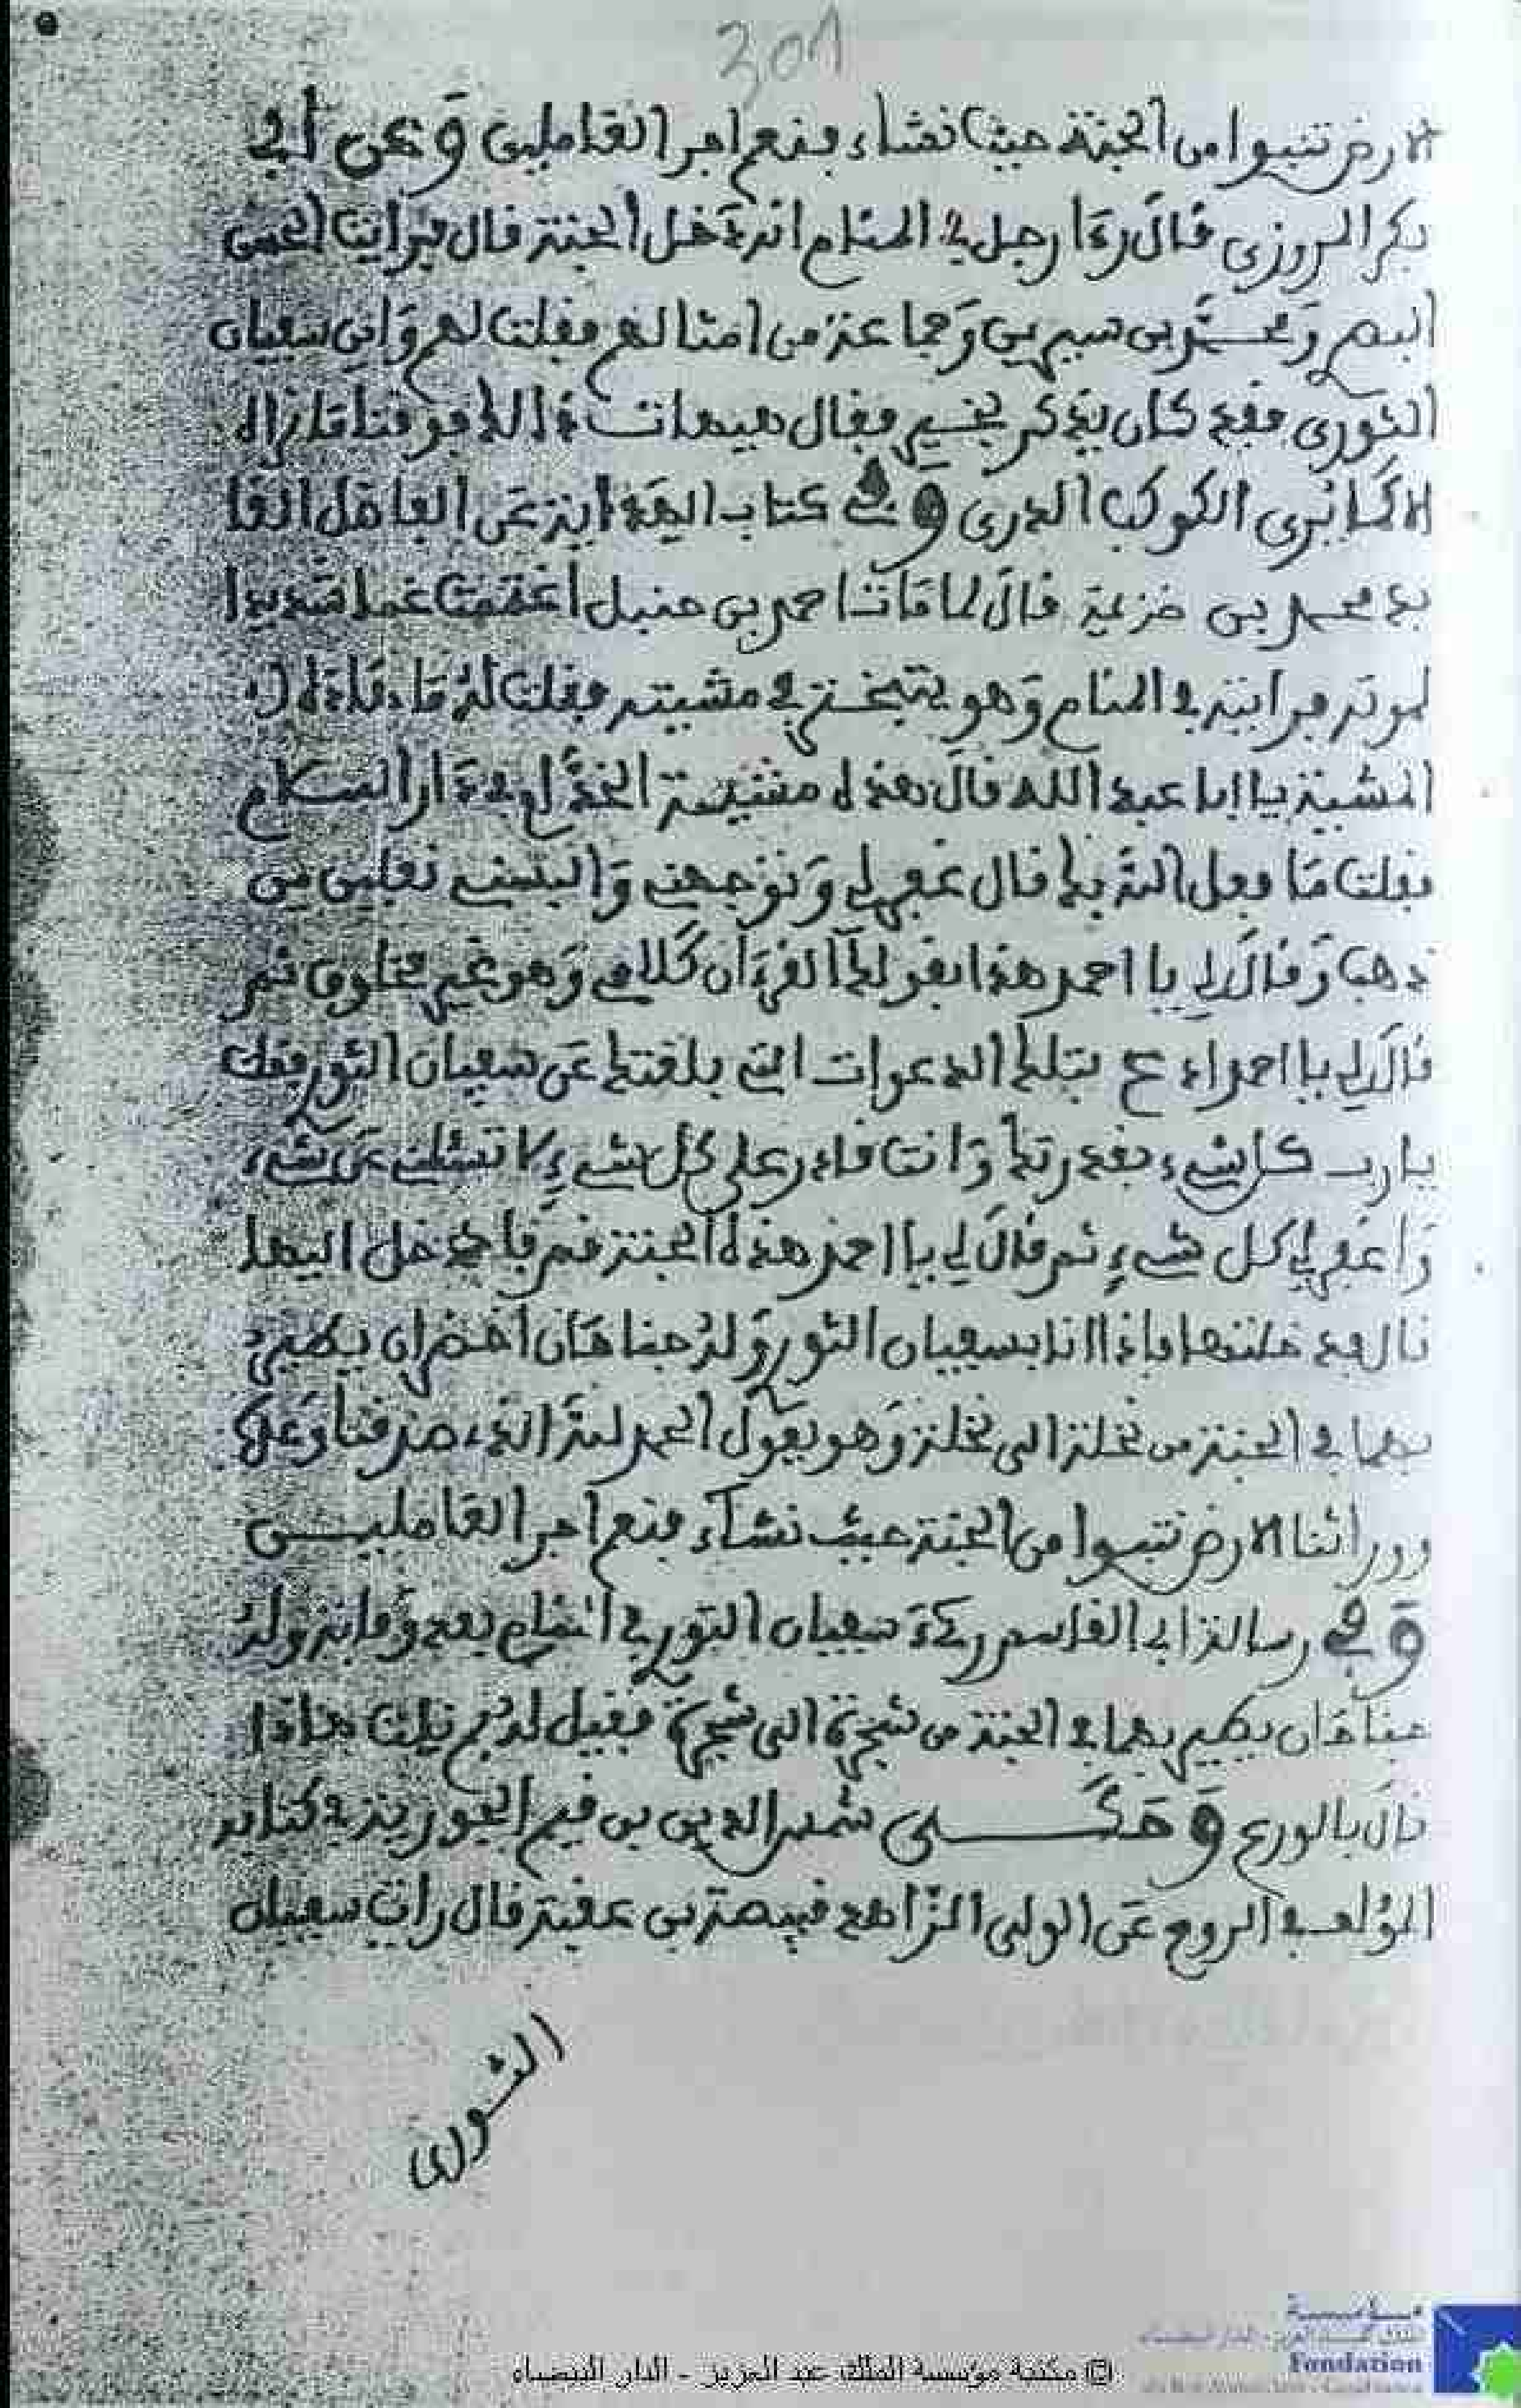 301
الارض نتبوا من الجنة حيث نشاء فنعم اجر العاملين وعن أبي
بكر المروزي قال رءا رجل في المنام انه دخل الجنة قال فرأيت الحسن
البصري ومحمد بن سيرين وجماعة من امثالهم فقلت لهم واين سفيان
الثوري فقد كان يذكر بخير فقال هيهات ذالك فوقنا ما نراه
الا كما نرى الكوكب الدري وفي كتاب الهداية عن العاقل العا
بد محمد بن خزيمة قال لما مات احمد بن حنبل اغتممت غما شديدا
لموته فرايته في المنام وهو يتبختر في مشيته فقلت له ما هاذه
المشية يا ابا عبد الله قال هذه مشية الخدام في دار السلام
فقلت ما فعل الله بك قال غفر لي وتوجني والبسني نعلين من
ذهب وقال لي يا احمد هذا بقولك القرءان كلامي وهو غير مخلوق ثم
قال لي يا احمد ادع بتلك الدعوات التي بلغتك عن سفيان الثوري فقلت
يا رب كل شيء بقدرتك وانت قادر على كل شيء لا تسئلني عن شيء
واغفر لي كل شيء ثم قال لي يا احمد هذه الجنة قم فادخل اليها
قال فدخلتها فاذا انا بسفيان الثوري وله جناحان اخضران يطير
بهما في الجنة من نخلة الى نخلة وهو يقول الحمد لله الذي صدقنا وعده
وورثنا الارض نتبوا من الجنة حيث نشاء فنعم اجر العاملين
وفي رسالة ابي القاسم رءي سفيان الثوري في المنام بعد وفاته وله
جناحان يطير بهما في الجنة من شجرة الى شجرة فقيل له بم نلت هاذا
قال بالورع وحكى شمس الدين بن قيم الجوزية في كتابه
المؤلف في الروح عن الولي الزاهد قبيصة بن عقبة قال رايت سفيان
الثوري
مؤسسة
Fondation
© مكتبة مؤسسة الملك عبد العزيز - الدار البيضاء